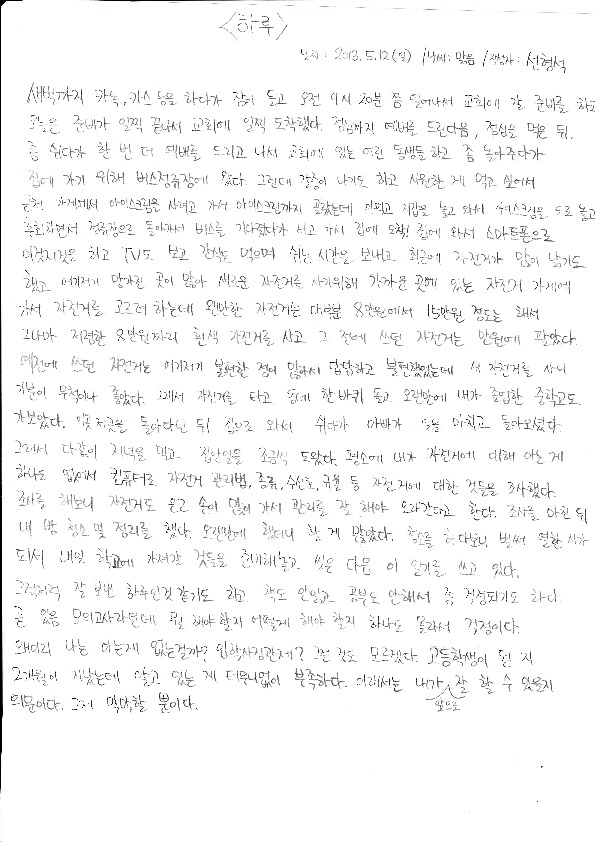 <하루>
날짜 : 2013. 5. 12 (일) / 날씨 : 맑음 / 작성자 : 선형석
새벽까지 카톡, 카스 등을 하다가 잠이 들고 오전 9시 20분 쯤 일어나서 교회에 갈 준비를 하고
오늘은 준비가 일찍 끝나서 교회에 일찍 도착했다. 점심까지 예배를 드린다음, 점심을 먹은 뒤,
좀 쉬다가 한 번 더 예배를 드리고 나서 교회에 있는 어린 동생들하고 좀 놀아주다가
집에 가기 위해 버스정류장에 왔다. 그런데 갈증이 나기도 하고 시원한 게 먹고 싶어서
근처 가게에서 아이스크림을 사려고 가서 아이스크림까지 골랐는데 지갑을 놓고 와서 아이스크림을 도로 놓고
후회하면서 정류장으로 돌아가서 버스를 기다렸다가 타고 가서 집에 도착! 집에 와서 스마트폰으로
이것저것 하고 TV도 보고 간식도 먹으며 쉬는 시간을 보내고 최근에 자전거가 많이 낡기도
했고 여기저기 망가진 곳이 많아 새로운 자전거를 사기위해 가까운 곳에 있는 자전거 가게에
가서 자전거를 고르려 하는데 웬만한 자전거는 대부분 8만원에서 15만원 정도는 해서
그나마 저렴한 8만원짜리 흰색 자전거를 사고 그 전에 쓰던 자전거는 만원에 팔았다.
예전에 쓰던 자전거는 여기저기 불편한 점이 많아서 답답하고 불편했었는데 새 자전거를 사니
기분이 무척이나 좋았다. 그래서 자전거를 타고 동네 한 바퀴 돌고 오랜만에 내가 졸업한 중학교도
가보았다. 이곳저곳을 돌아다닌 뒤 집으로 와서 쉬다가 아빠가 일을 마치고 돌아오셨다.
그래서 다같이 저녁을 먹고 집안일을 조금씩 도왔다. 평소에 내가 자전거에 대해 아는 게
하나도 없어서 컴퓨터로 자전거 관리법, 종류, 수신호, 규율 등 자전거에 대한 것들을 조사했다.
조사를 해보니 자전거도 은근 손이 많이 가서 관리를 잘 해야 오래간다고 한다. 조사를 마친 뒤
내 방 청소 및 정리를 했다. 오랜만에 했더니 할 게 많았다. 청소를 하다보니 벌써 열한 시가
되서 내일 학교에 가져갈 것들을 준비해놓고 씻은 다음 이 일기를 쓰고 있다.
그럭저럭 잘 보낸 하루인것 같기도 하고 책도 안읽고 공부도 안해서 좀 걱정되기도 하다.
곧 있음 모의고사라던데 뭘 해야할지 어떻게 해야 할지 하나도 몰라서 걱정이다.
왜이리 나는 아는게 없는걸까? 입학사정관제? 그런 것도 모르겠다. 고등학생이 된 지
2개월이 지났는데 알고 있는 게 터무니없이 부족하다. 이래서는 내가 앞으로 잘 할 수 있을지
의문이다. 그저 막막할 뿐이다.